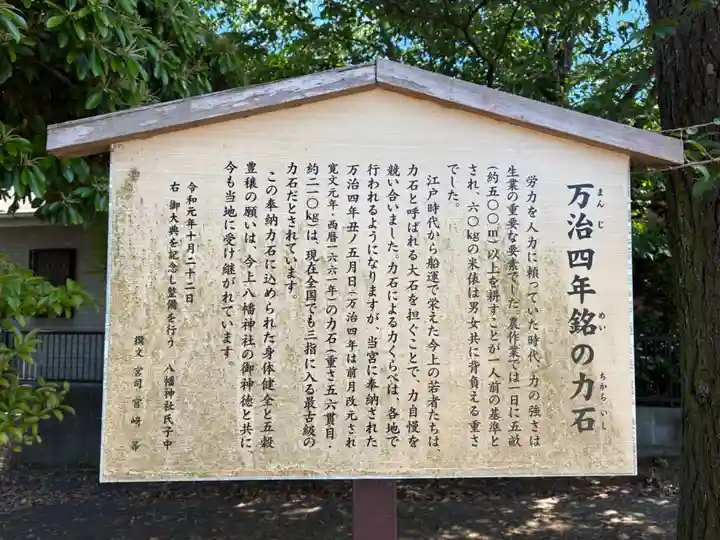 万治四年銘の力石
まんじ
めい
ちから・いし
労力を人力に頼っていた時代、力の強さは
生業の重要な要素でした。農作業では一日に五畝
(約五〇〇㎡)以上を耕すことが一人前の基準と
され、六〇kgの米俵は男女共に背負える重さ
でした。
江戸時代から船運で栄えた今上の若者たちは、
力石と呼ばれる大石を担ぐことで、力自慢を
競い合いました。力石による力くらべは、各地で
行われるようになりますが、当宮に奉納された
万治四年丑ノ五月日(万治四年は前月改元され
寛文元年・西暦一六六一年)の力石(重さ五六貫目・
約二一〇kg)は、現在全国でも三指に入る最古級の
力石だとされています。
この奉納力石に込められた身体健全と五穀
豊穣の願いは、今上八幡神社の御神徳と共に、
今も当地に受け継がれています。
令和元年十月二十二日
右 御大典を記念し整備を行う 八幡神社氏子中
撰文 宮司 宮﨑